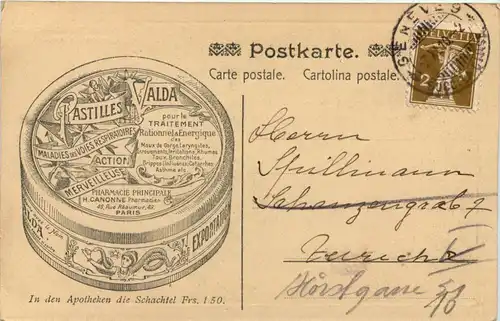 Postkarte.
Carte postale. Cartolina postale.
GENÈVE 9
HELVETIA
2
PASTILLES VALDA
pour le
TRAITEMENT
Rationnel & Energique
des
Maux de Gorge, Laryngites,
Enrouements, Irritations, Rhumes
Toux, Bronchites,
Grippe (Influenza), Catarrhes
Asthme etc
MALADIES DES VOIES RESPIRATOIRES
ACTION
MERVEILLEUSE
PHARMACIE PRINCIPALE
H. CANONNE Pharmacien
49, Rue Réaumur, 49.
PARIS
EXPORTATION
In den Apotheken die Schachtel Frs. 1 50.
Herrn
Spillmann
Schanzengrab 7
Zuerich